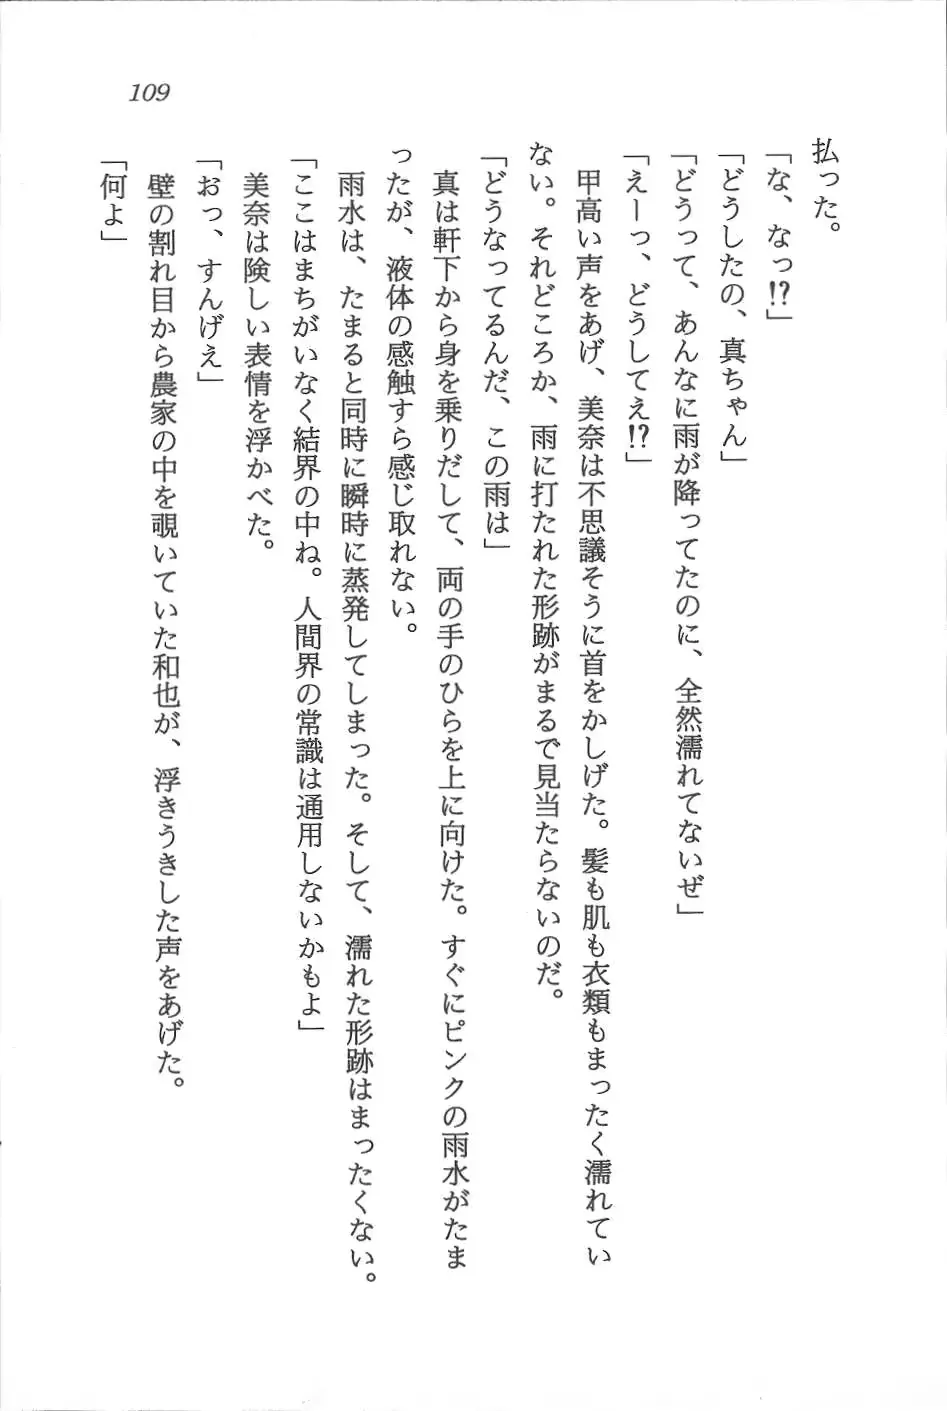 109
払った。
「な、なっ!?」
「どうしたの、真ちゃん」
「どうって、あんなに雨が降ってたのに、全然濡れてないぜ」
「えーっ、どうしてえ!?」
甲高い声をあげ、美奈は不思議そうに首をかしげた。髪も肌も衣類もまったく濡れてい
ない。それどころか、雨に打たれた形跡がまるで見当たらないのだ。
「どうなってるんだ、この雨は」
真は軒下から身を乗りだして、両の手のひらを上に向けた。すぐにピンクの雨水がたま
ったが、液体の感触すら感じ取れない。
雨水は、たまると同時に瞬時に蒸発してしまった。そして、濡れた形跡はまったくない。
「ここはまちがいなく結界の中ね。人間界の常識は通用しないかもよ」
美奈は険しい表情を浮かべた。
「おっ、すんげえ」
壁の割れ目から農家の中を覗いていた和也が、浮きうきした声をあげた。
「何よ」